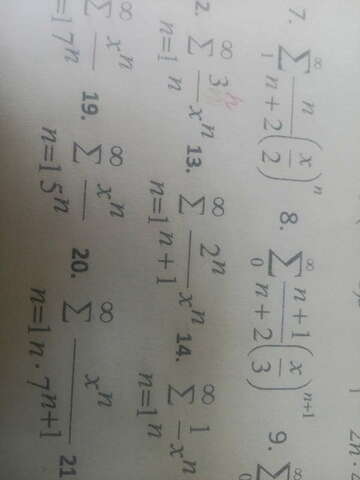 7. ∑_{1}^{∞} \frac{n}{n+2} (\frac{x}{2})^{n} 8. ∑_{0}^{∞} \frac{n+1}{n+2} (\frac{x}{3})^{n+1} 9. ∑_{0}
2. ∑_{n=1}^{∞} \frac{3^{n}}{n} x^{n} 13. ∑_{n=1}^{∞} \frac{2^{n}}{n+1} x^{n} 14. ∑_{n=1}^{∞} \frac{1}{n} x^{n}
∑_{n=1}^{∞} \frac{x^{n}}{7^{n}} 19. ∑_{n=1}^{∞} \frac{x^{n}}{5^{n}} 20. ∑_{n=1}^{∞} \frac{x^{n}}{n·7^{n+1}} 21